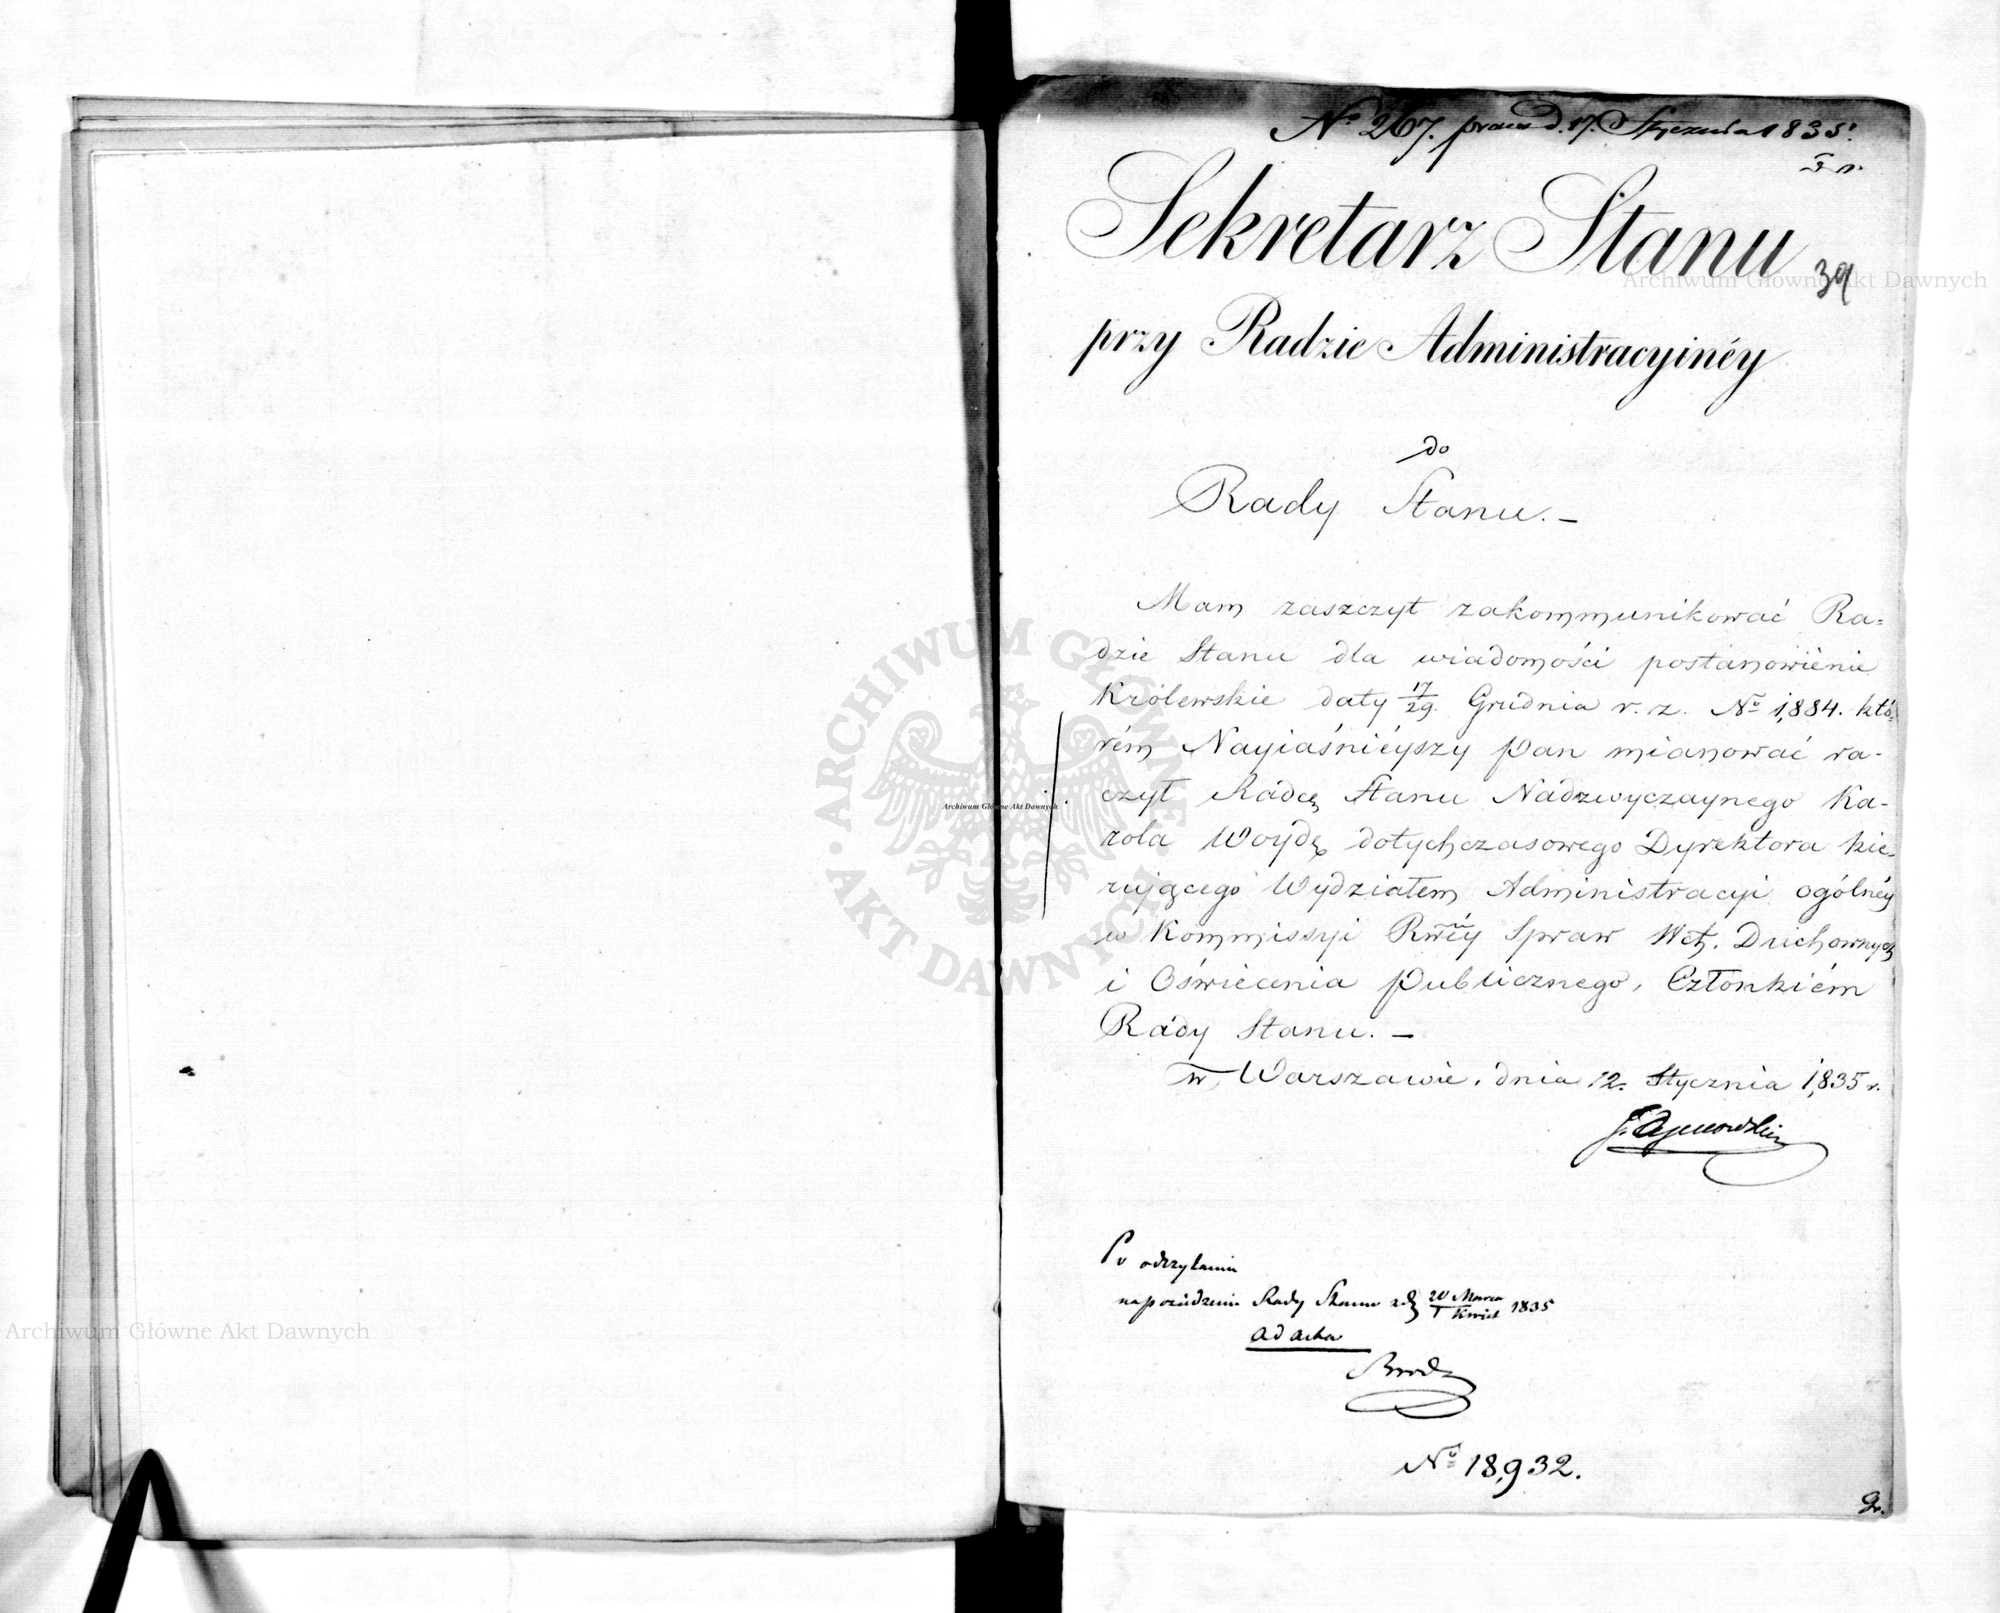 No 267. praes d. 17. Stycznia 1835.
Sekretarz Stanu
39
przy Radzie Administracyinéy
do
Rady Stanu. —
Mam zaszczyt zakommunikować Ra=
dzie Stanu dla wiadomości postanowienie
Królewskie daty 17/29. Grudnia r. z. No 1,884. któ=
rém Nayiaśnieyszy Pan mianować ra-
czył Radcę Stanu Nadzwyczaynego Ka-
rola Woydę dotychczasowego Dyrektora kie-
rującego Wydziałem Administracyi ogólnéy
w Kommissyi Rwéy Spraw Wch. Duchownych
i Oświecenia Publicznego, Członkiem
Rady Stanu. —
w Warszawie, dnia 12. Stycznia 1,835 r.
Po odczytaniu
na posiedzeniu Rady Stanu z d. 20 Marca/1 Kwiet 1835
ad acta
No 18,932.
Archiwum Główne Akt Dawnych
Archiwum Główne Akt Dawnych
Archiwum Główne Akt Dawnych
ARCHIWUM GŁÓWNE AKT DAWNYCH